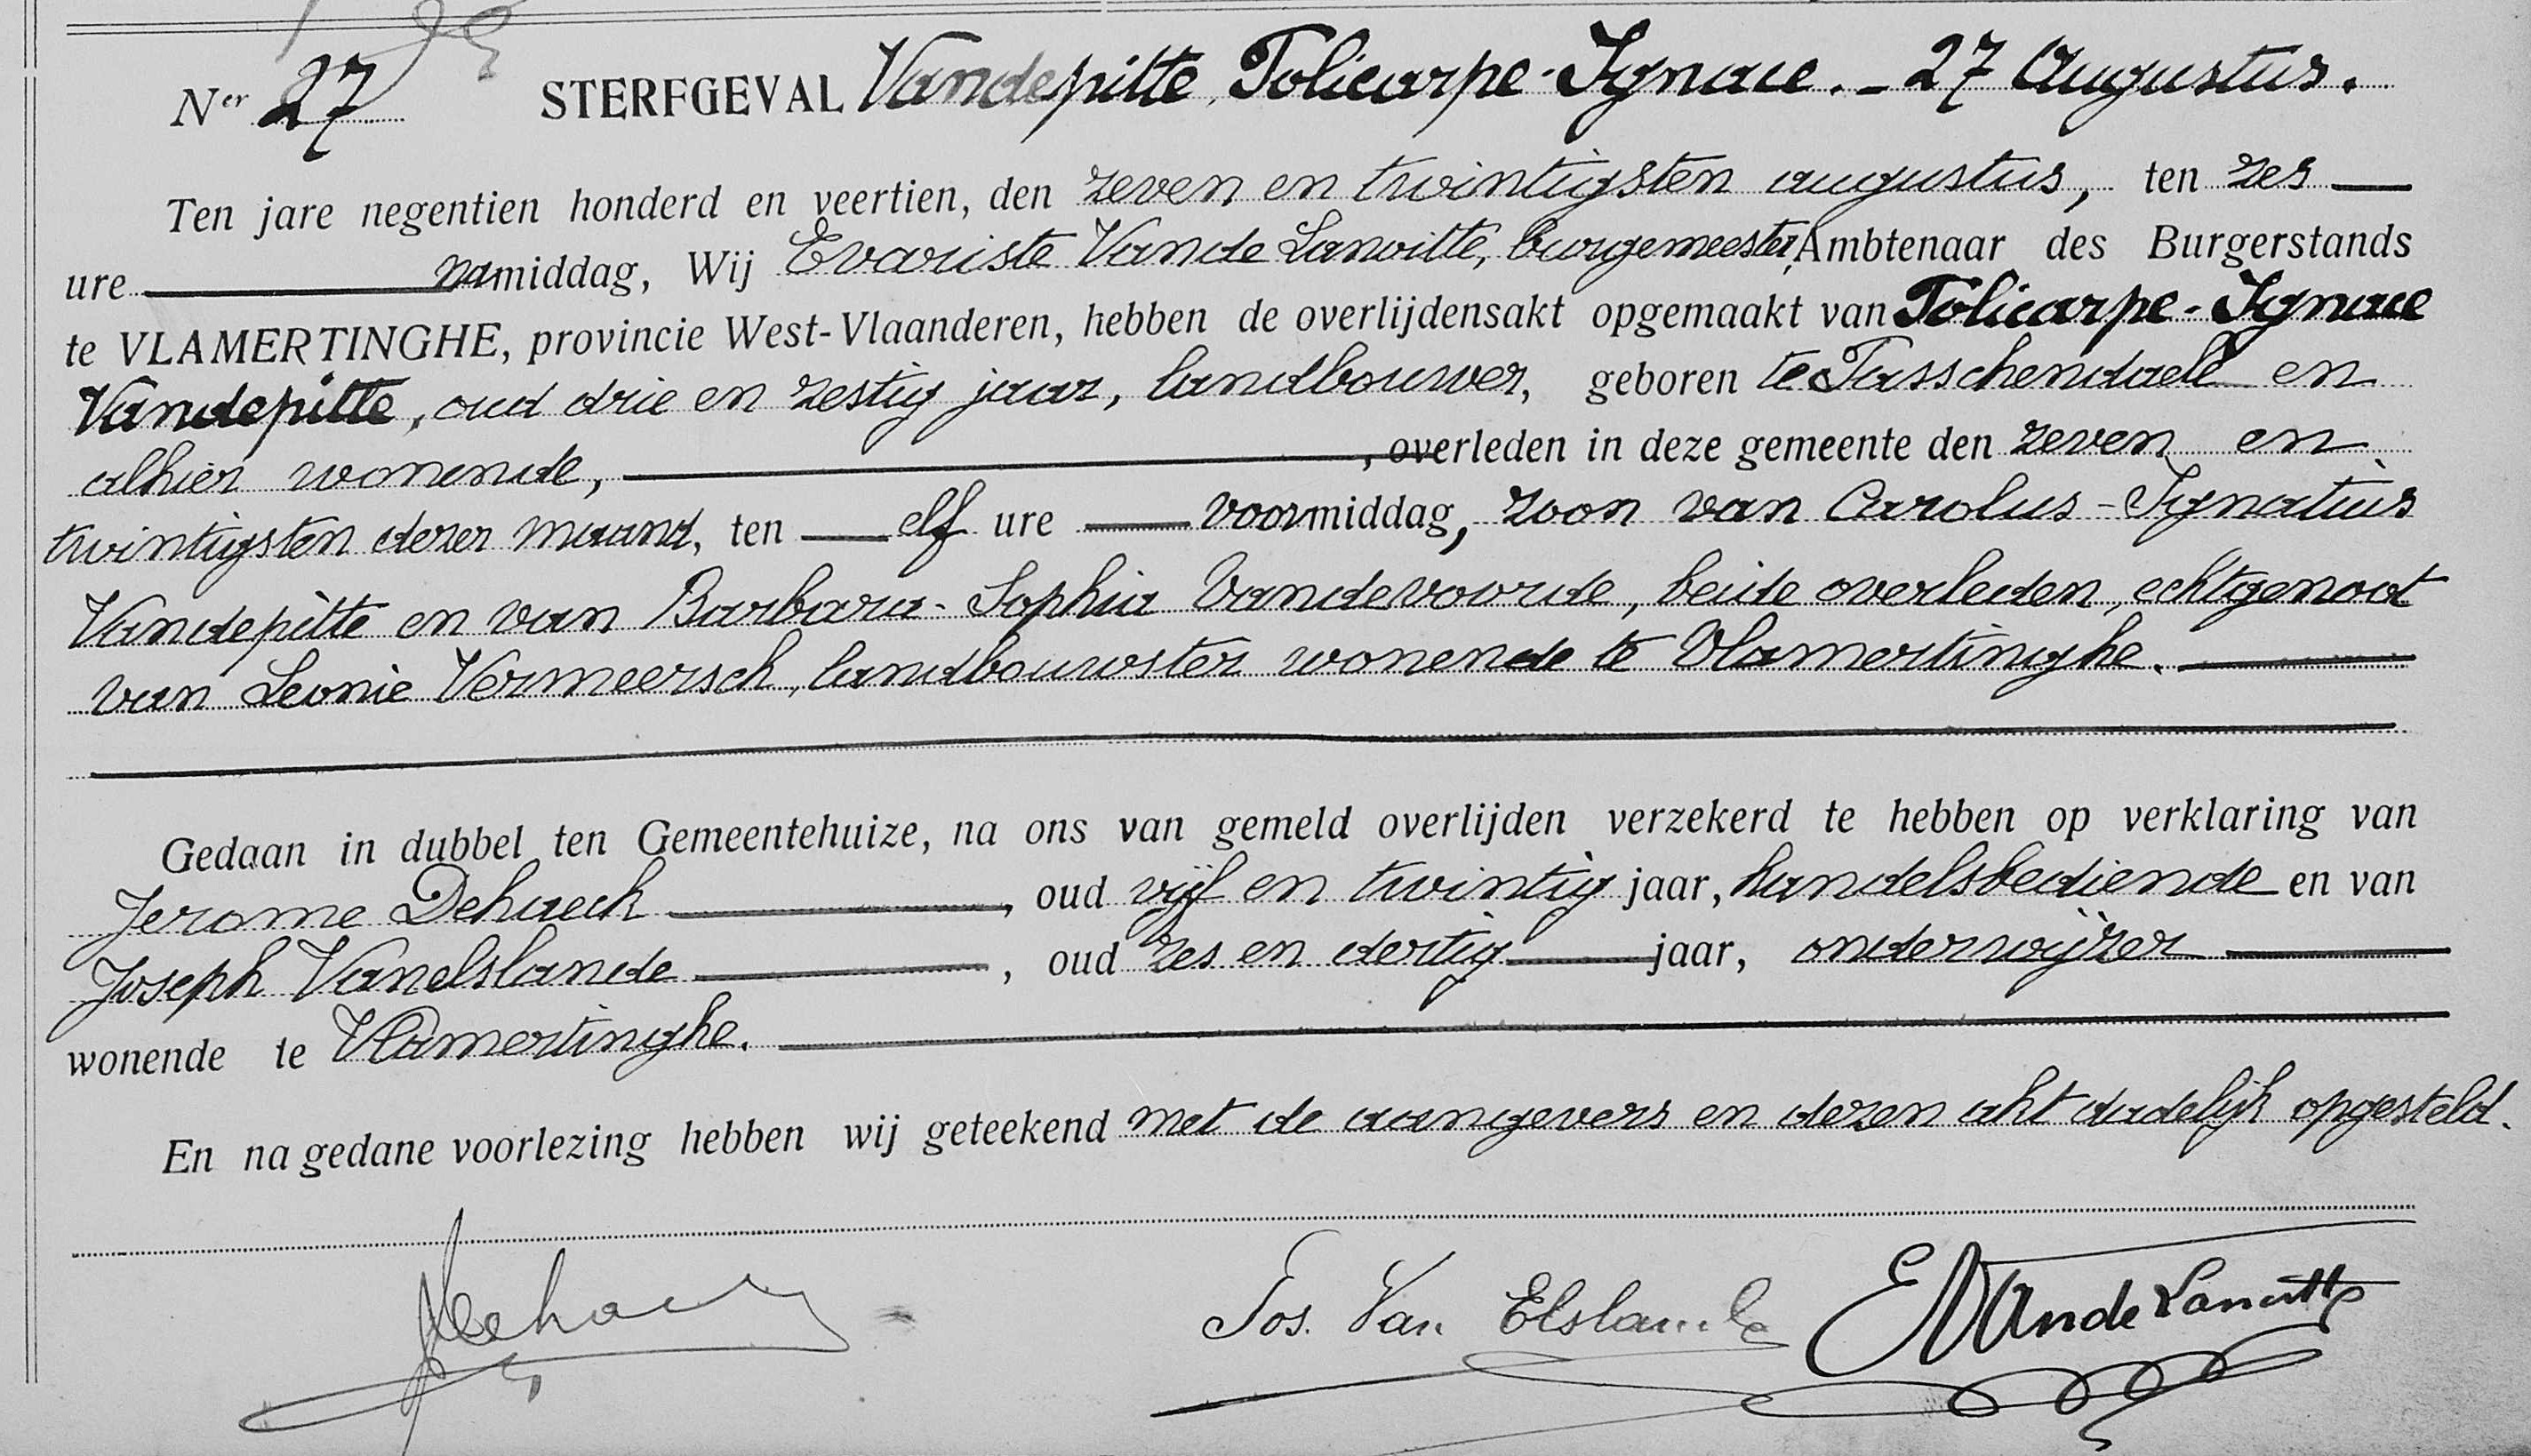 Ner 27 STERFGEVAL Vandepitte, Policarpe-Ignace. - 27 Augustus.
Ten jare negentien honderd en veertien, den zeven en twintigsten augustus, ten zes
ure namiddag, Wij Evariste Vande Lanoitte, burgemeester, Ambtenaar des Burgerstands
te VLAMERTINGHE, provincie West-Vlaanderen, hebben de overlijdensakt opgemaakt van Policarpe-Ignace
Vandepitte, oud drie en zestig jaar, landbouwer, geboren te Passchendaele en
alhier wonende, , overleden in deze gemeente den zeven en
twintigsten dezer maand, ten elf ure voormiddag, zoon van Carolus-Ignatius
Vandepitte en van Barbara-Sophia Vandevoorde, beide overleden, echtgenoot
van Leonie Vermeersch, landbouwster wonende te Vlamertinghe.
Gedaan in dubbel ten Gemeentehuize, na ons van gemeld overlijden verzekerd te hebben op verklaring van
Jerome Dehaeck , oud vijf en twintig jaar, handelsbediende en van
Joseph Vanelslande , oud zes en dertig jaar, onderwijzer
wonende te Vlamertinghe.
En na gedane voorlezing hebben wij geteekend met de aangevers en dezen akt dadelijk opgesteld.
Jos. Van Elslande E Vande Lanoitte